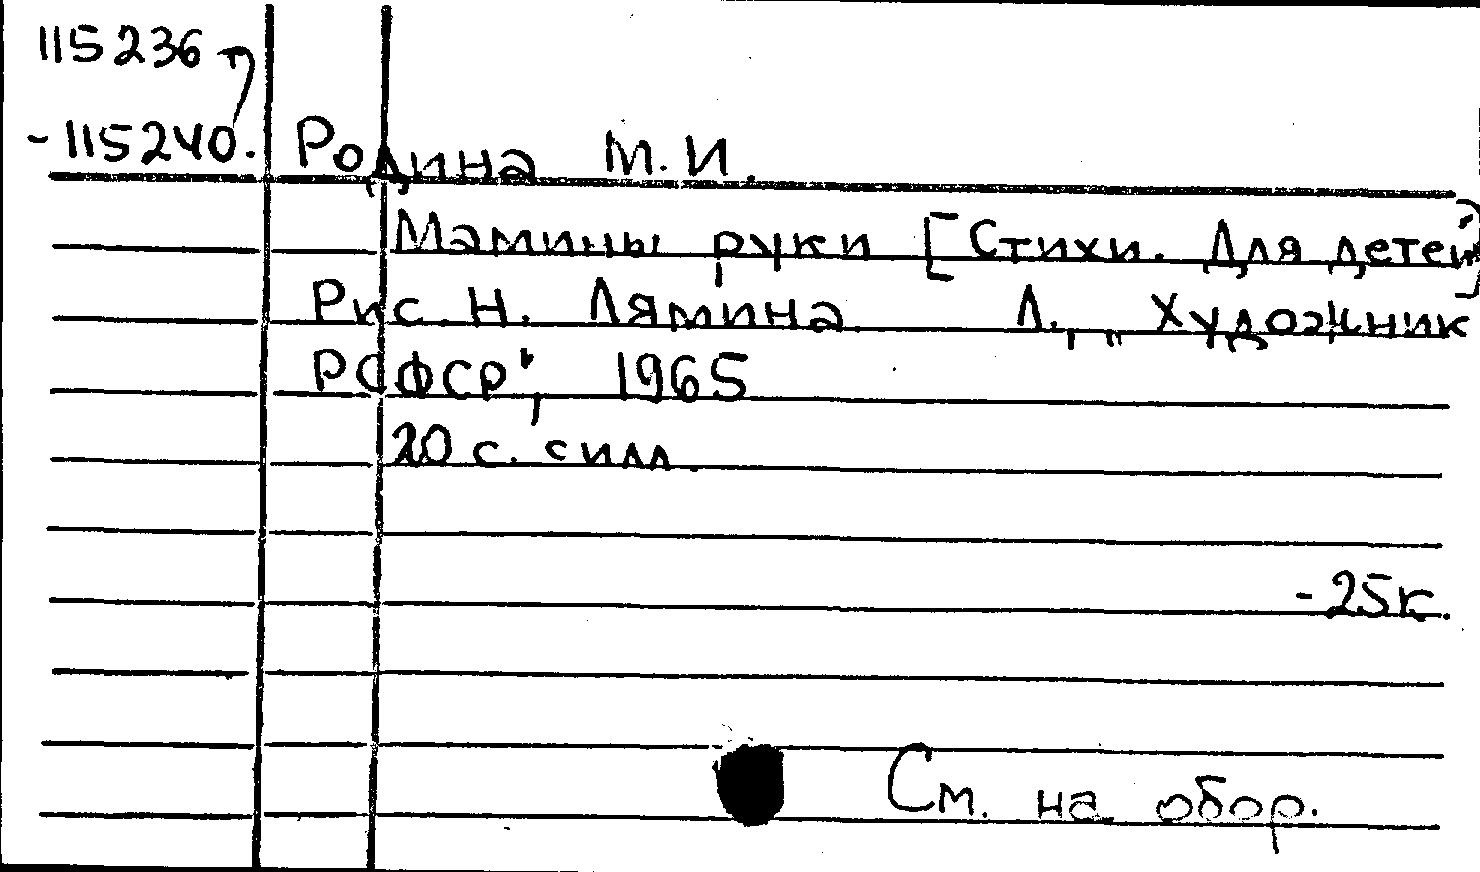 115236
-115240.
Родина М.И.
Мамины руки [Стихи. Для детей]
Рис. Н. Лямина. Л., „Художник
РСФСР", 1965
20 с. с илл.
-25к.
См. на обор.